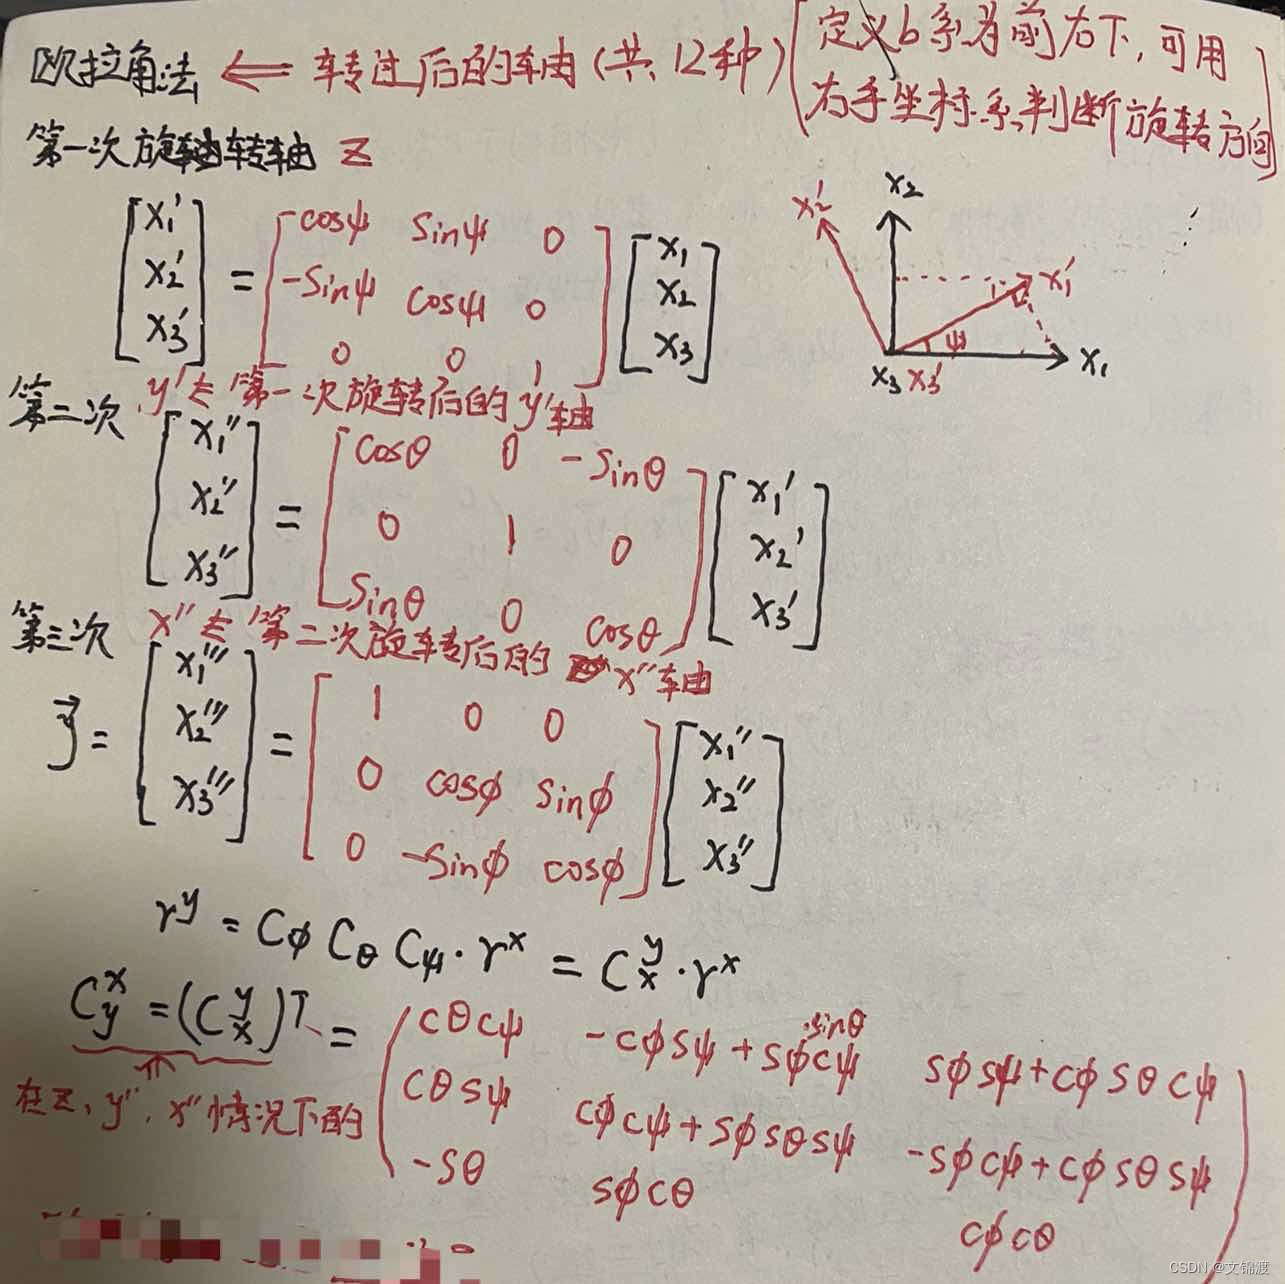 欧拉角法 ⇐ 转过后的轴 (共12种) (定义b系为前右下,可用
右手坐标系判断旋转方向)
第一次旋转转轴 Z
[x₁' x₂' x₃'] = [cosψ sinψ 0; -sinψ cosψ 0; 0 0 1] [x₁ x₂ x₃]
x₂' x₂ x₁' ψ x₁ x₃ x₃'
第二次 y' 第一次旋转后的y'轴
[x₁'' x₂'' x₃''] = [cosθ 0 -sinθ; 0 1 0; sinθ 0 cosθ] [x₁' x₂' x₃']
第三次 x'' 第二次旋转后的 x''轴
= [x₁''' x₂''' x₃'''] = [1 0 0; 0 cosφ sinφ; 0 -sinφ cosφ] [x₁'' x₂'' x₃'']
r^y = Cφ Cθ Cψ · r^x = C_x^y · r^x
C_y^x = (C_x^y)^T = (cθcψ -cφsψ+sφcψ·sinθ sφsψ+cφsθcψ
cθsψ cφcψ+sφsθsψ -sφcψ+cφsθsψ
-sθ sφcθ cφcθ)
在z、y'',x''情况下的
CSDN @文锦渡